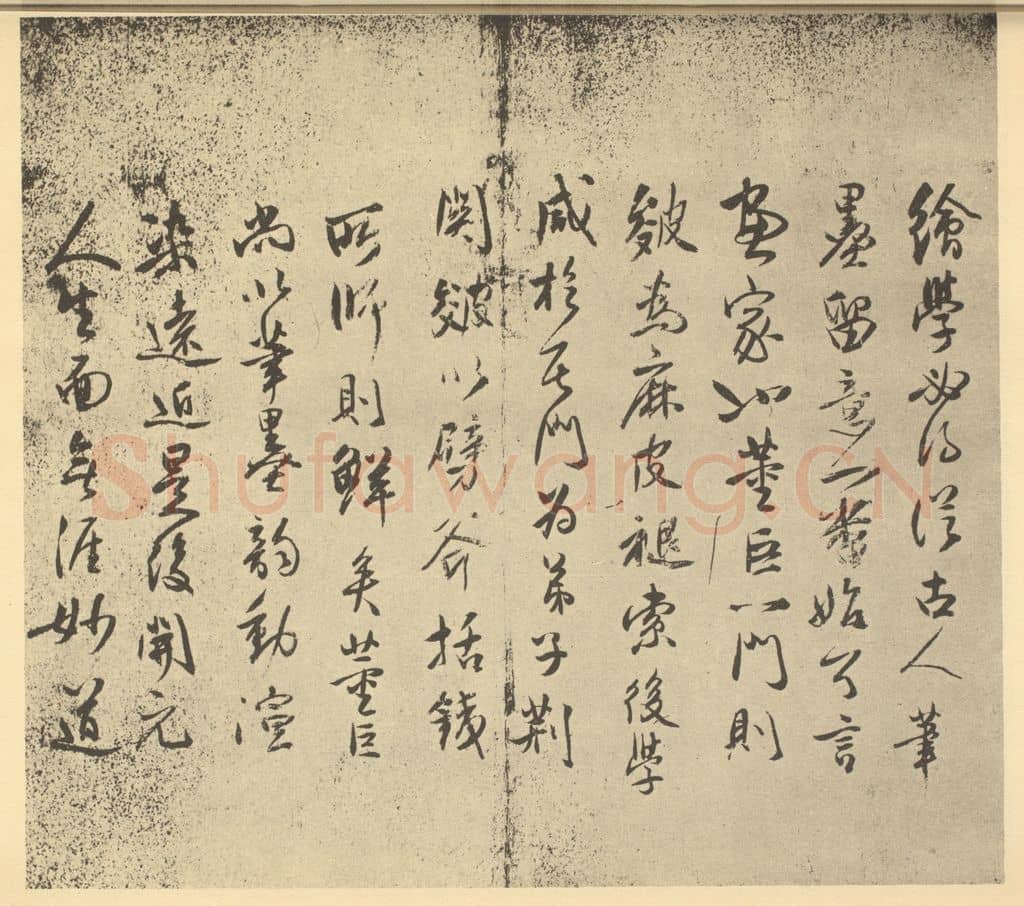 繪學必得從古人筆
墨留意一番始可言
畫家如董巨一門則
皴為麻皮褪索後學
咸於其門為弟子荆
関皴以劈斧括鉄
所師則鮮矣董巨
尚以筆墨韵動渲
染遠近是後開元
人生面無涯妙道
Shufawang.CN